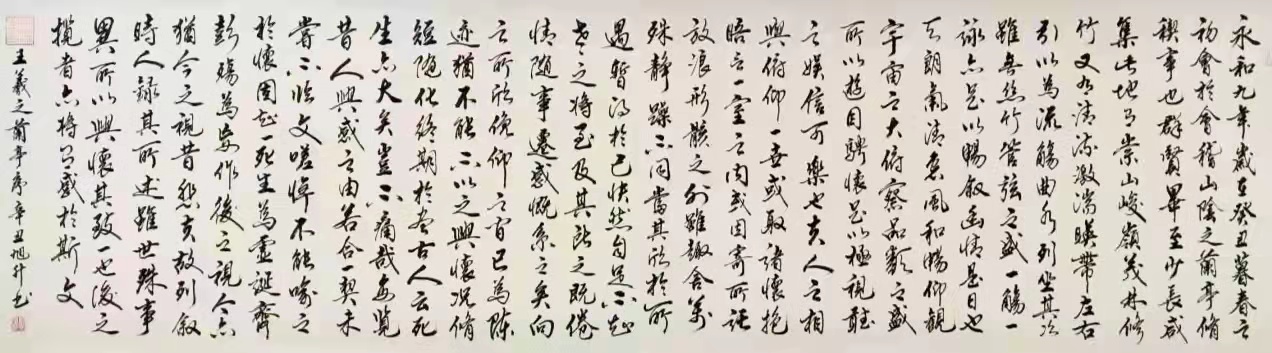 永和九年歲在癸丑暮春之
初會於會稽山陰之蘭亭脩
禊事也群賢畢至少長咸
集此地有崇山峻嶺茂林修
竹又有清流激湍暎帶左右
引以為流觴曲水列坐其次
雖無絲竹管弦之盛一觴一
詠亦足以暢敘幽情是日也
天朗氣清惠風和暢仰觀
宇宙之大俯察品類之盛
所以遊目騁懷足以極視聽
之娛信可樂也夫人之相
與俯仰一世或取諸懷抱
晤言一室之內或因寄所託
放浪形骸之外雖趣舍萬
殊靜躁不同當其欣於所
遇暫得於己快然自足不知
老之將至及其所之既倦
情隨事遷感慨係之矣向
之所欣俛仰之間已為陳
迹猶不能不以之興懷況脩
短隨化終期於盡古人云死
生亦大矣豈不痛哉每覽
昔人興感之由若合一契未
嘗不臨文嗟悼不能喻之
於懷固知一死生為虛誕齊
彭殤為妄作後之視今亦
猶今之視昔悲夫故列敘
時人錄其所述雖世殊事
異所以興懷其致一也後之
攬者亦將有感於斯文
王羲之蘭亭序辛丑旭升書